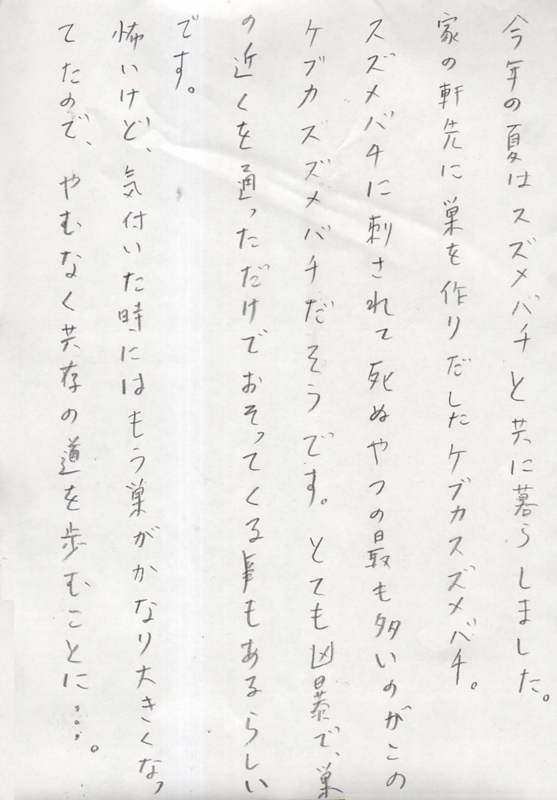 今年の夏はスズメバチと共に暮らしました。
家の軒先に巣を作りだしたケブカスズメバチ。
スズメバチに刺されて死ぬやつの最も多いのがこの
ケブカスズメバチだそうです。とても凶暴で、巣
の近くを通っただけでおそってくる事もあるらしい
です。
怖いけど、気付いた時にはもう巣がかなり大きくなっ
てたので、やむなく共存の道を歩むことに…。